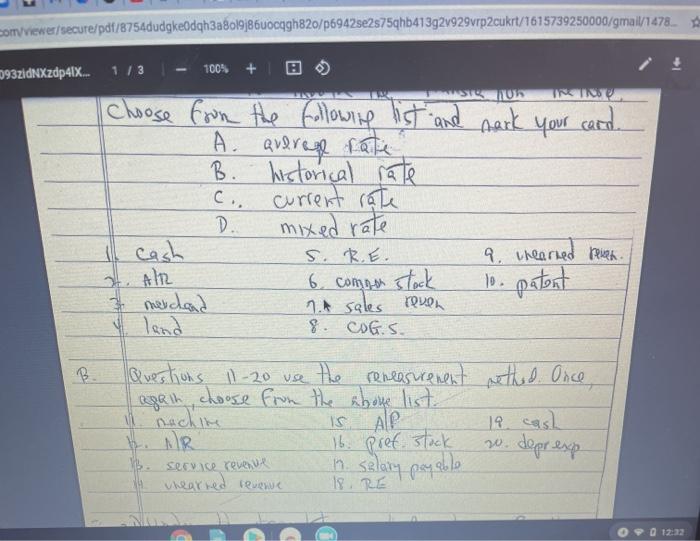 com/viewer/secure/pdf/8754dudgke0dqh3a8ol9j86uocqgh82o/p6942se2s75qhb413g2v929vrp2cukrt/1615739250000/gmail/1478...
D93zidNXzdp4IX... 1 / 3 100%
Choose from the following list and mark your card.
A. average rate
B. historical rate
C. current rate
D. mixed rate
1. cash 5. R.E. 9. unearned reven.
2. A/R 6. common stock 10. patent
3. 7. sales reven
4. land 8. COG.S.
B. Questions 11-20 use the remeasurement method. Once,
again, choose from the above list.
11. machine 15 A/P 19. cash
12. A/R 16. pref. stock 20. depr exp
13. service revenue 17. salary payable
14. unearned revenue 18. RE
12:32